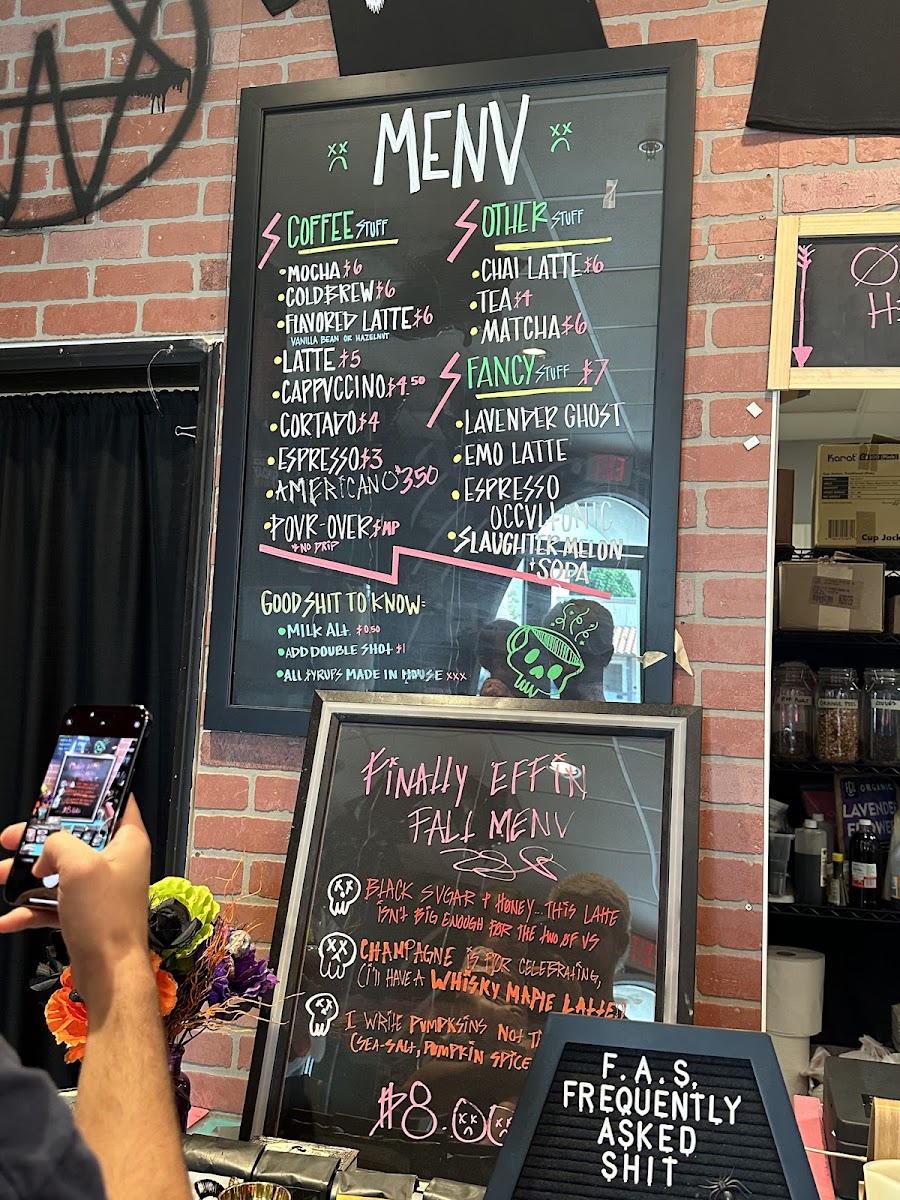 MENU
COFFEE STUFF
• MOCHA $6
• COLDBREW $6
• FLAVORED LATTE $6
VANILLA BEAN OR HAZELNUT
• LATTE $5
• CAPPUCCINO $4.50
• CORTADO $4
• ESPRESSO $3
• AMERICANO $3.50
• POUR-OVER $MP
* NO DRIP
OTHER STUFF
• CHAI LATTE $6
• TEA $4
• MATCHA $6
FANCY STUFF $7
• LAVENDER GHOST
• EMO LATTE
• ESPRESSO
OCCULTONIC
• SLAUGHTER MELON
+ SODA
GOOD SHIT TO KNOW:
• MILK ALT. $0.50
• ADD DOUBLE SHOT $1
• ALL SYRUPS MADE IN HOUSE XXX
FINALLY EFFIN
FALL MENU
BLACK SUGAR & HONEY... THIS LATTE
ISN'T BIG ENOUGH FOR THE TWO OF US
CHAMPAGNE IS FOR CELEBRATING,
(I'LL HAVE A WHISKY MAPLE LATTE)
I WRITE PUMPKSINS NOT
(SEA-SALT, PUMPKIN SPICE
$8
F.A.S.
FREQUENTLY
ASKED
SHIT
Karat
Cup Jack
ORGANIC
LAVENDER